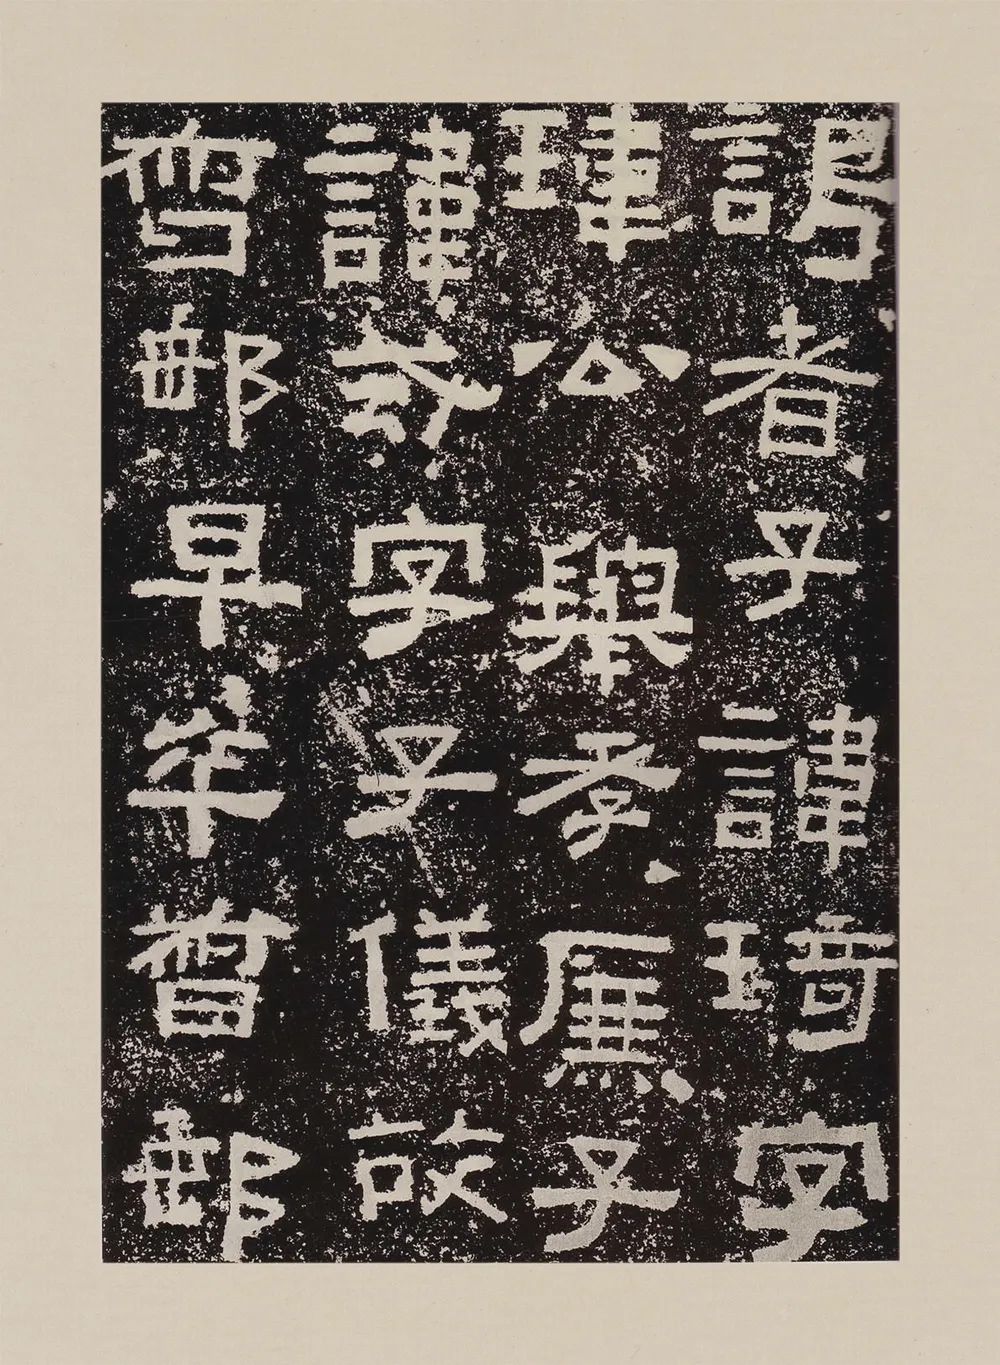 謁者子諱琦字
瑋公舉孝廉子
諱字子儀故
督郵早卒督郵